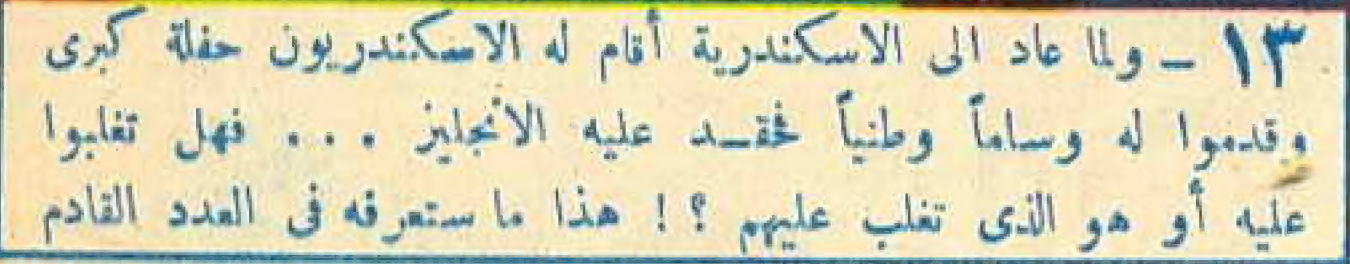 ١٣ – ولما عاد الى الاسكندرية أقام له الاسكندريون حفلة كبرى
وقدموا له وساماً وطنياً فحقـد عليه الانجليز ... فهل تغلبوا
عليه أو هو الذى تغلب عليهم ؟! هذا ما ستعرفه فى العدد القادم